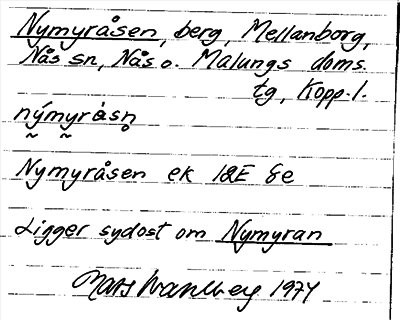 Nymyråsen, berg, Mellanborg,
Nås sn, Nås o. Malungs doms.
tg, Kopp. l.
nýmyràsn̥
Nymyråsen ek 12E 8e
Ligger sydost om Nymyran
Mats Wahlberg 1974